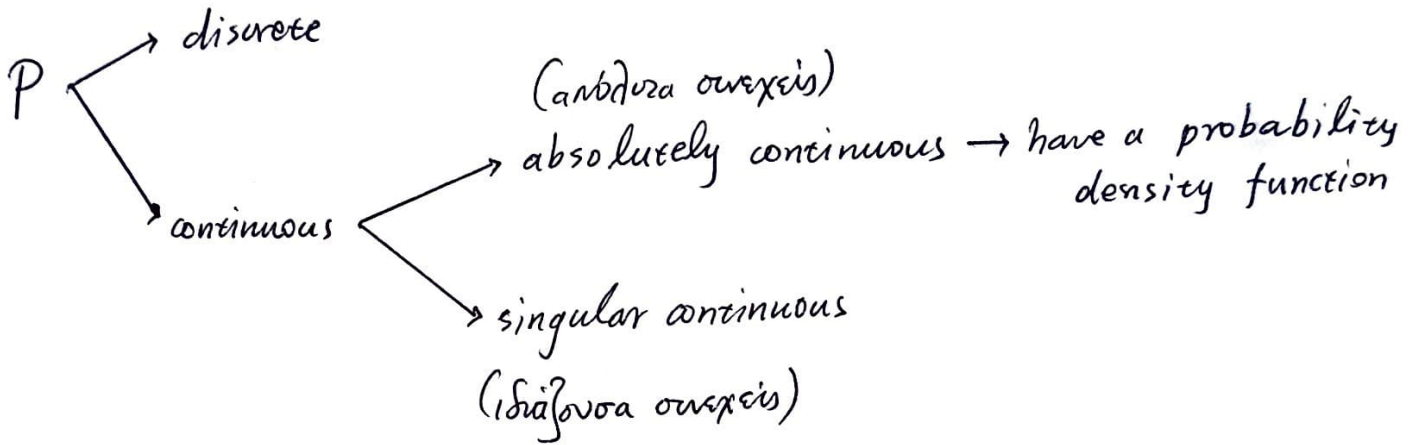 P
discrete
(απόλυτα συνεχείς)
absolutely continuous → have a probability
density function
continuous
singular continuous
(ιδιάζουσα συνεχείς)